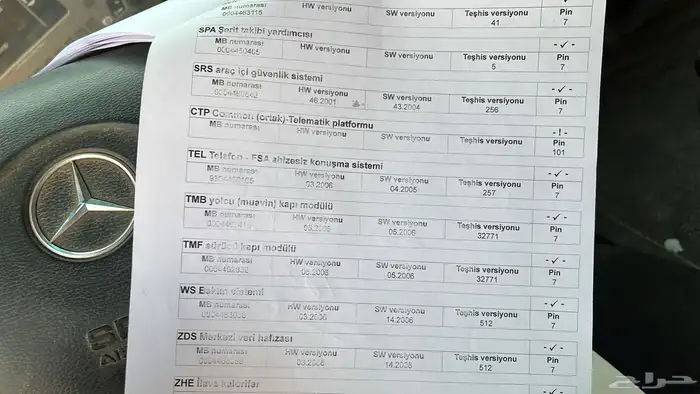 MB numarası HW versiyonu SW versiyonu Teşhis versiyonu Pin
0004463115 41 7
SPA Şerit takibi yardımcısı - ✓ -
MB numarası HW versiyonu SW versiyonu Teşhis versiyonu Pin
5 7
SRS araç içi güvenlik sistemi - ✓ -
MB numarası HW versiyonu SW versiyonu Teşhis versiyonu Pin
46.2001 43.2004 256 7
CTP Common (ortak)-Telematik platformu - ! -
MB numarası HW versiyonu SW versiyonu Teşhis versiyonu Pin
101
TEL Telefon - FSA ahizesiz konuşma sistemi - ✓ -
MB numarası HW versiyonu SW versiyonu Teşhis versiyonu Pin
03.2006 04.2005 257 7
TMB yolcu (muavin) kapı modülü - ✓ -
MB numarası HW versiyonu SW versiyonu Teşhis versiyonu Pin
05.2006 32771 7
TMF sürücü kapı modülü - ✓ -
MB numarası HW versiyonu SW versiyonu Teşhis versiyonu Pin
05.2006 05.2006 32771 7
WS Bakım sistemi - ✓ -
MB numarası HW versiyonu SW versiyonu Teşhis versiyonu Pin
03.2006 14.2006 512 7
ZDS Merkezi veri hafızası - ✓ -
MB numarası HW versiyonu SW versiyonu Teşhis versiyonu Pin
03.2006 14.2006 512 7
ZHE İlave kalorifer - ✓ -
SRS
AIRBAG
حراج